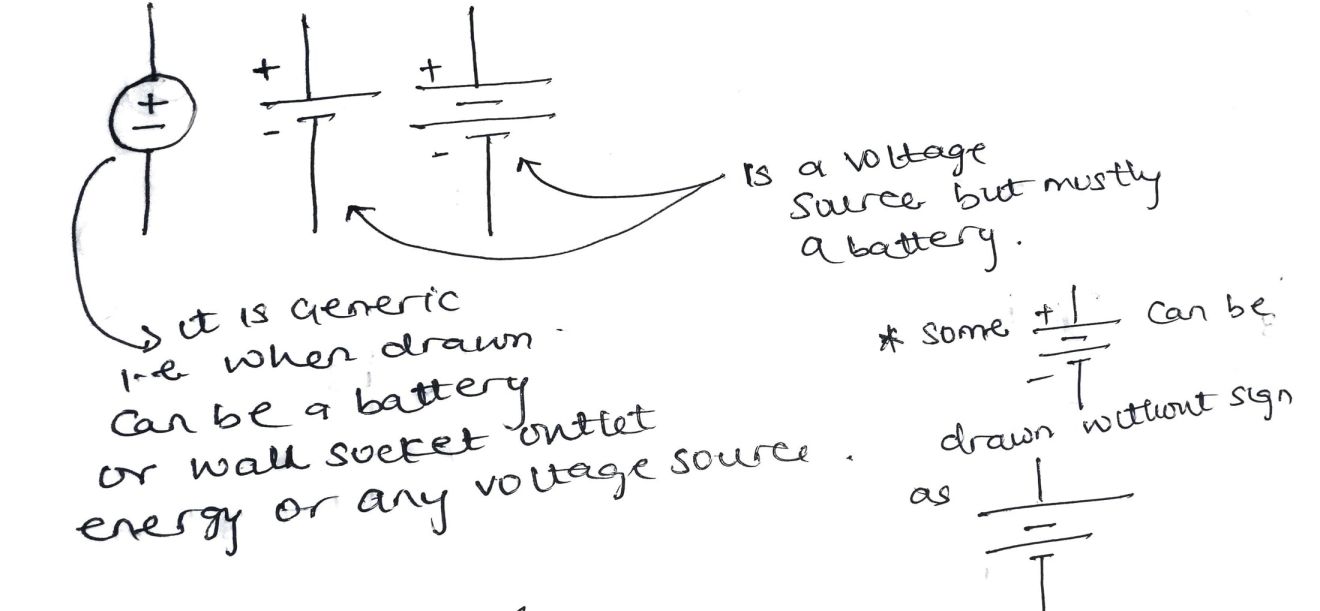 +
-
+
-
+
-
is a voltage
source but mostly
a battery.
it is Generic
i.e when drawn
can be a battery
or wall socket outlet
energy or any voltage source.
* some + - can be
drawn without sign
as